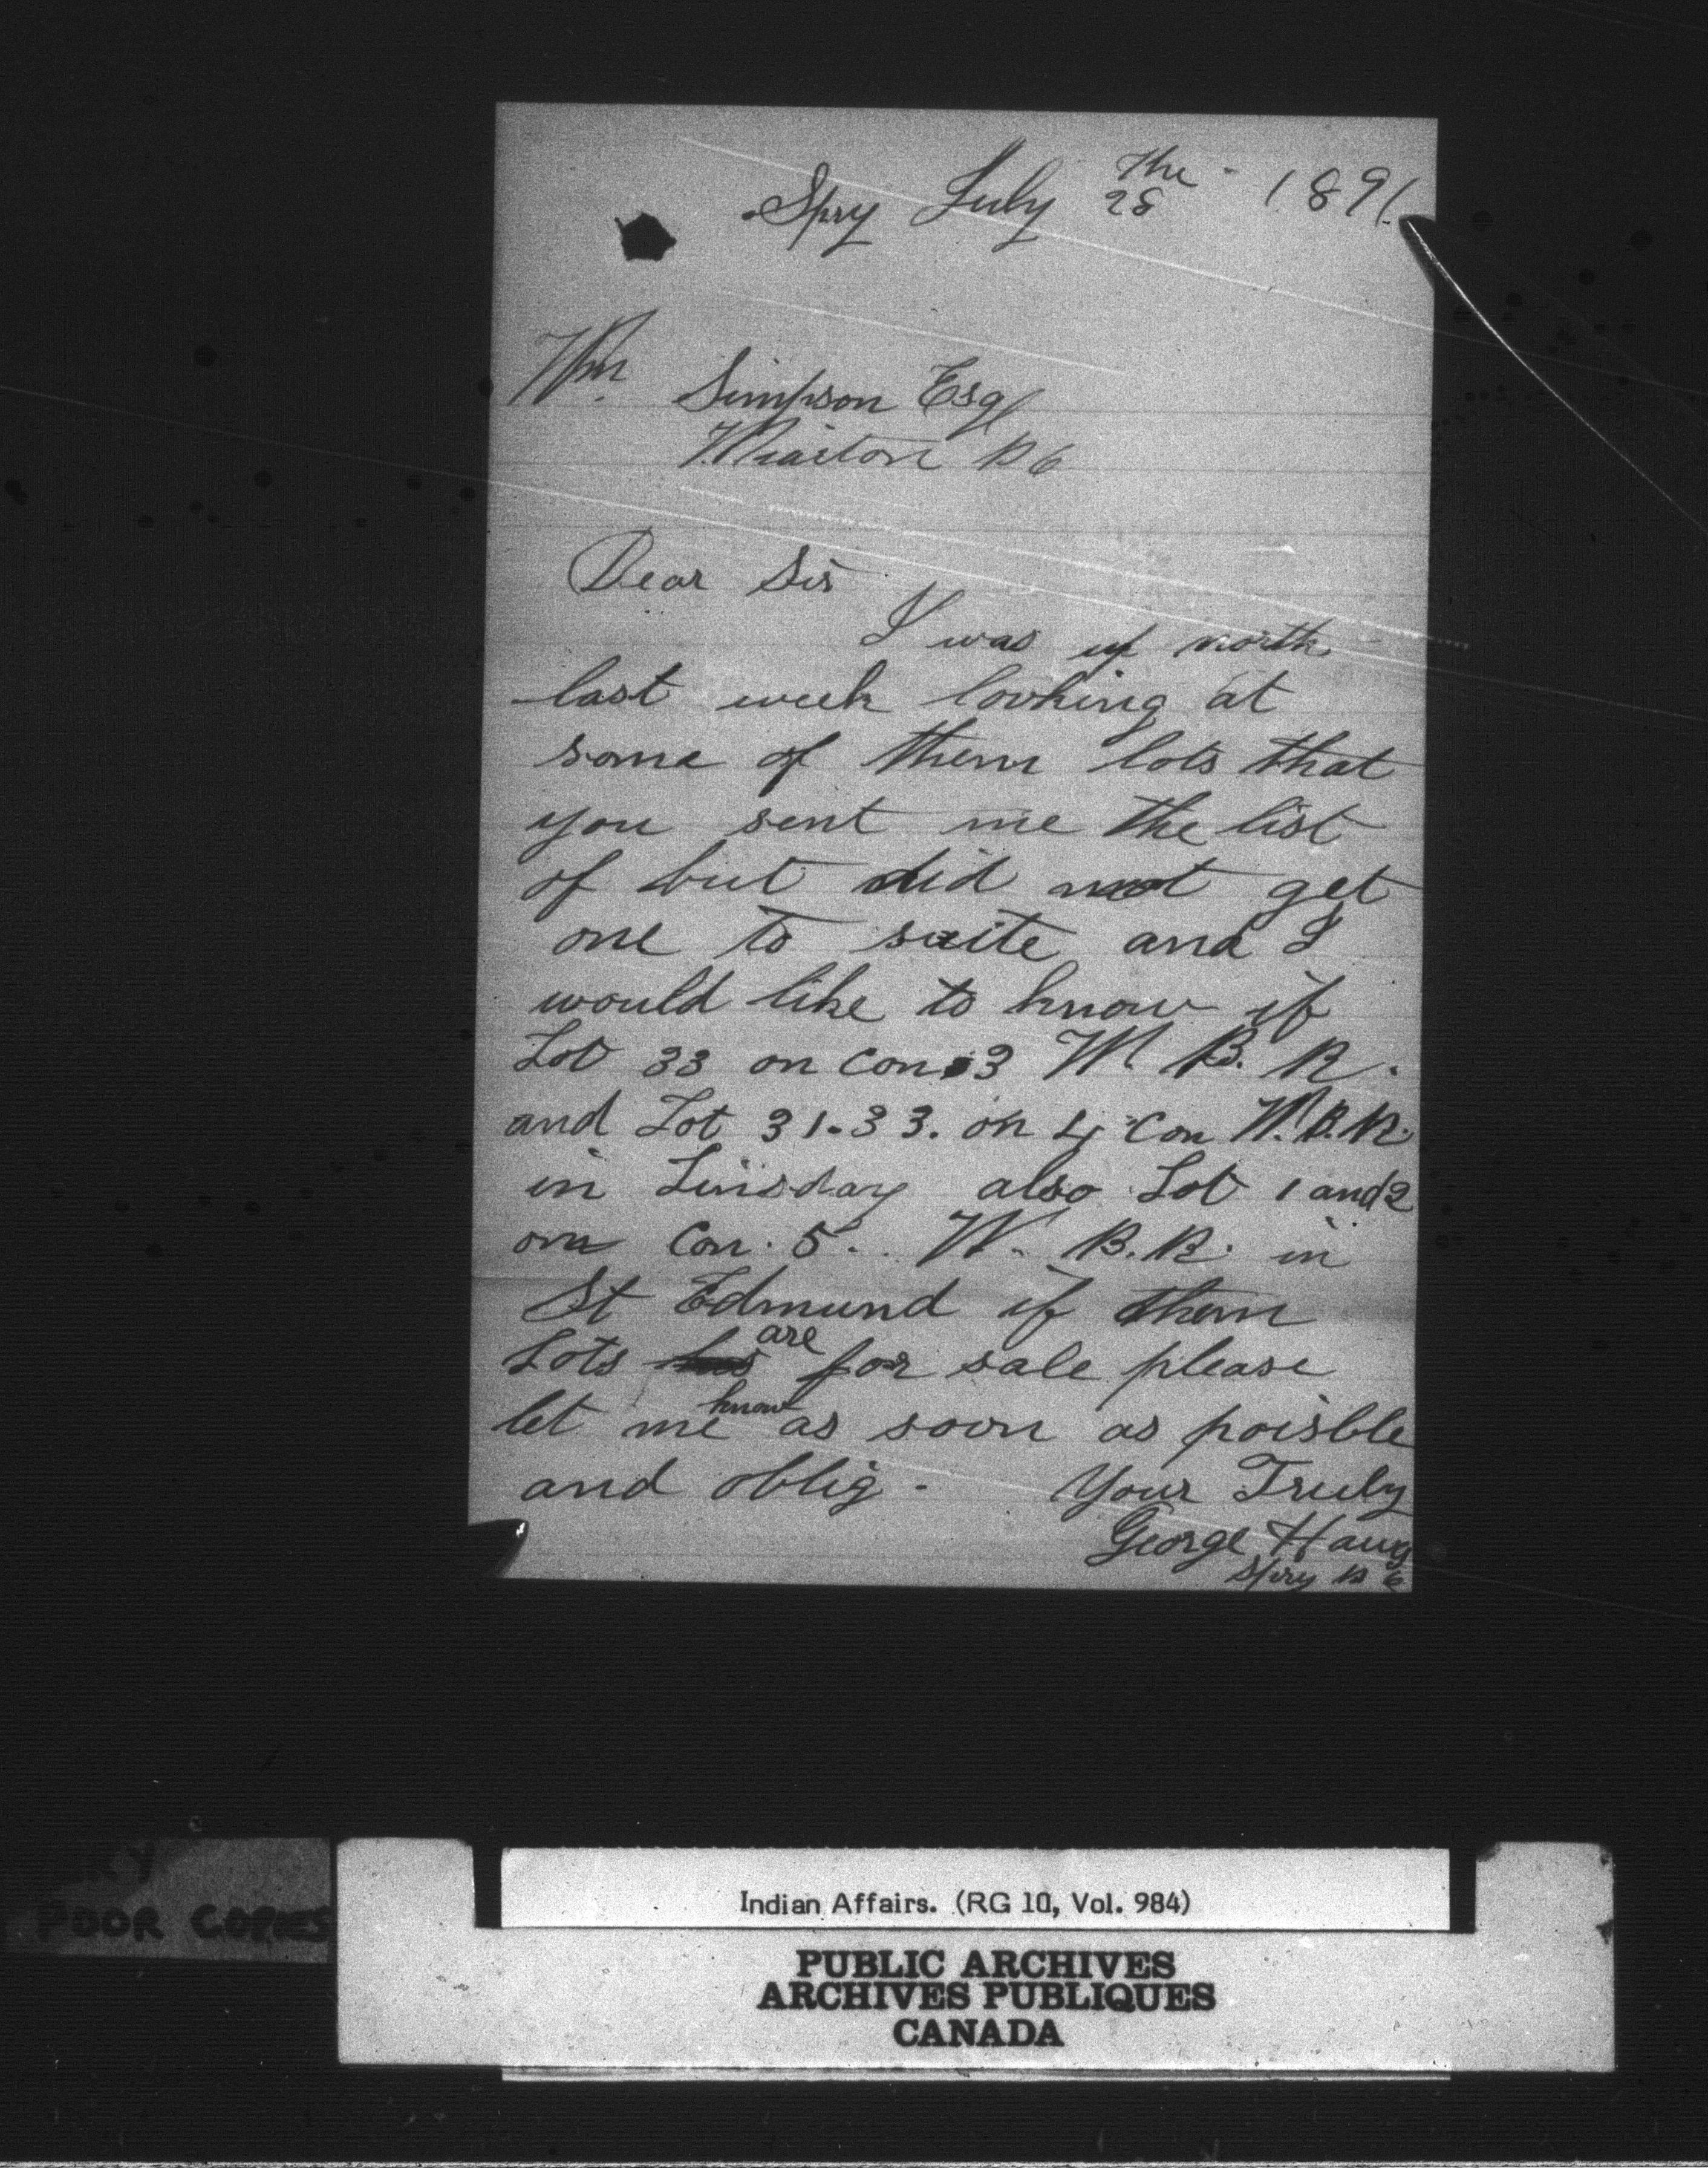 Spry July 28 the 1891.
Wm. Simpson Esq
Wiarton P O
Dear Sir
I was up north
last week looking at
some of them lots that
you sent me the list
of but did not get
one to suite and I
would like to know if
Lot 33 on Con 3 W. B. R.
and Lot 31-33. on 4 Con W.B.R.
in Linsday also Lot 1 and 2
on Con. 5. W. B.R. in
St Edmund if them
Lots are for sale please
let me know as soon as poisble
and oblig. Your Truly
George Haug
Spry P O
ERY
POOR COPIES
Indian Affairs. (RG 10, Vol. 984)
PUBLIC ARCHIVES
ARCHIVES PUBLIQUES
CANADA